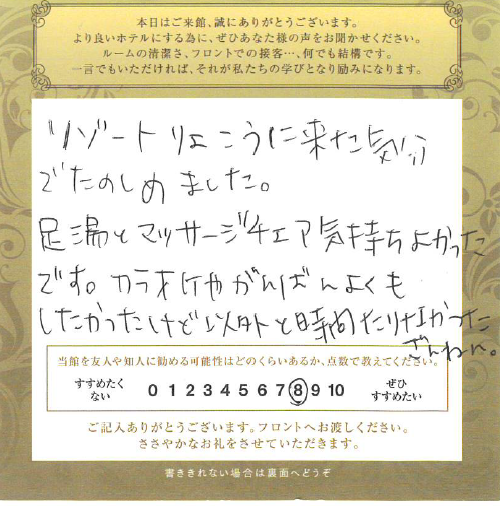 本日はご来館、誠にありがとうございます。
より良いホテルにする為に、ぜひあなた様の声をお聞かせください。
ルームの清潔さ、フロントでの接客…、何でも結構です。
一言でもいただければ、それが私たちの学びとなり励みになります。
リゾートりょこうに来た気分
でたのしめました。
足湯とマッサージチェア気持ちよかった
です。カラオケやがんばんよくも
したかったけど以外と時間たりなかった
ざんねん。
当館を友人や知人に勧める可能性はどのくらいあるか、点数で教えてください。
すすめたくない 0 1 2 3 4 5 6 7 8 9 10 ぜひすすめたい
ご記入ありがとうございます。フロントへお渡しください。
ささやかなお礼をさせていただきます。
書ききれない場合は裏面へどうぞ